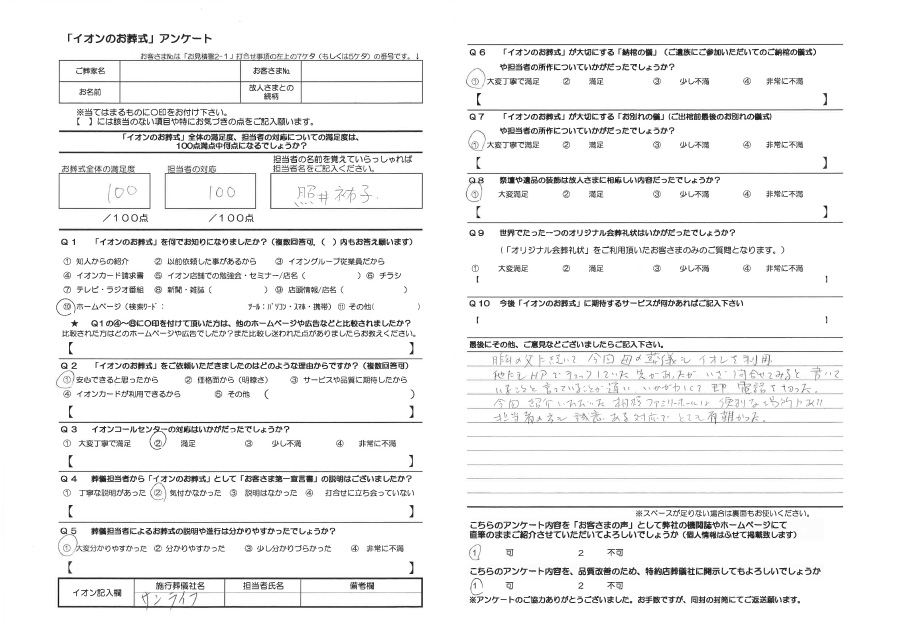 「イオンのお葬式」アンケート
お客さま№は「お見積書2-1」打合せ事項の左上の7ケタ（もしくは5ケタ）の番号です。↓
ご葬家名 お客さま№
お名前 故人さまとの続柄
※当てはまるものに○印をお付け下さい。
【　】には該当のない項目や特にお気づきの点をご記入願います。
「イオンのお葬式」全体の満足度、担当者の対応についての満足度は、
100点満点中何点になるでしょうか？
お葬式全体の満足度 担当者の対応 担当者の名前を覚えていらっしゃれば
担当者名をご記入ください。
100 100 照井祐子
／100点 ／100点
Q1 「イオンのお葬式」を何でお知りになりましたか？（複数回答可,（　）内もお答え願います）
① 知人からの紹介 ② 以前依頼した事があるから ③ イオングループ従業員だから
④ イオンカード請求書 ⑤ イオン店舗での勉強会・セミナー/店名（　） ⑥ チラシ
⑦ テレビ・ラジオ番組 ⑧ 新聞・雑誌（　） ⑨ 店頭情報/店名（　）
⑩ ホームページ（検索ﾜｰﾄﾞ： ﾂｰﾙ：ﾊﾟｿｺﾝ・ｽﾏﾎ・携帯） ⑪ その他（　）
★ Q1の④～⑧に○印を付けて頂いた方は、他のホームページや広告などと比較されましたか？
比較された方はどのホームページや広告でしたか？また比較し迷われた点がありましたらお教えください。
【　】
Q2 「イオンのお葬式」をご依頼いただきましたのはどのような理由からですか？（複数回答可）
① 安心できると思ったから ② 価格面から（明瞭さ） ③ サービスや品質に期待したから
④ イオンカードが利用できるから ⑤ その他（　）
【　】
Q3 イオンコールセンターの対応はいかがだったでしょうか？
① 大変丁寧で満足 ② 満足 ③ 少し不満 ④ 非常に不満
【　】
Q4 葬儀担当者から「イオンのお葬式」として「お客さま第一宣言書」の説明はございましたか？
① 丁寧な説明があった ② 気付かなかった ③ 説明はなかった ④ 打合せに立ち会っていない
【　】
Q5 葬儀担当者によるお葬式の説明や進行は分かりやすかったでしょうか？
① 大変分かりやすかった ② 分かりやすかった ③ 少し分かりづらかった ④ 非常に不満
【　】
イオン記入欄 施行葬儀社名 担当者氏名 備考欄
サンライフ
Q6 「イオンのお葬式」が大切にする「納棺の儀」（ご遺族にご参加いただいてのご納棺の儀式）
や担当者の所作についていかがだったでしょうか？
① 大変丁寧で満足 ② 満足 ③ 少し不満 ④ 非常に不満
【　】
Q7 「イオンのお葬式」が大切にする「お別れの儀」（ご出棺前最後のお別れの儀式）
や担当者の所作についていかがだったでしょうか？
① 大変丁寧で満足 ② 満足 ③ 少し不満 ④ 非常に不満
【　】
Q8 祭壇や遺品の装飾は故人さまに相応しい内容だったでしょうか？
① 大変満足 ② 満足 ③ 少し不満 ④ 非常に不満
【　】
Q9 世界でたった一つのオリジナル会葬礼状はいかがだったでしょうか？
（「オリジナル会葬礼状」をご利用頂いたお客さまのみのご質問となります。）
① 大変満足 ② 満足 ③ 少し不満 ④ 非常に不満
【　】
Q10 今後「イオンのお葬式」に期待するサービスが何かあればご記入下さい
【　】
最後にその他、ご意見などございましたらご記入下さい。
昨年の父に続いて 今回母の葬儀も イオンを利用
他社も HPでチェックしていた 先があったが いざ 問合せてみると 書いて
いることと 言っていることが違い いかがわしくて 即 電話を切った。
今回 紹介いただいた 相模ファミリーホールは 便利な場所にあり
担当者も 誠意ある対応で とても 有難かった。
※スペースが足りない場合は裏面もお使いください。
こちらのアンケート内容を「お客さまの声」として弊社の機関誌やホームページにて
直筆のままご紹介させていただいてよろしいでしょうか（個人情報はふせて掲載致します）
1 可 2 不可
こちらのアンケート内容を、品質改善のため、特約店葬儀社に開示してもよろしいでしょうか
1 可 2 不可
※アンケートのご協力ありがとうございました。お手数ですが、同封の封筒にてご返送願います。